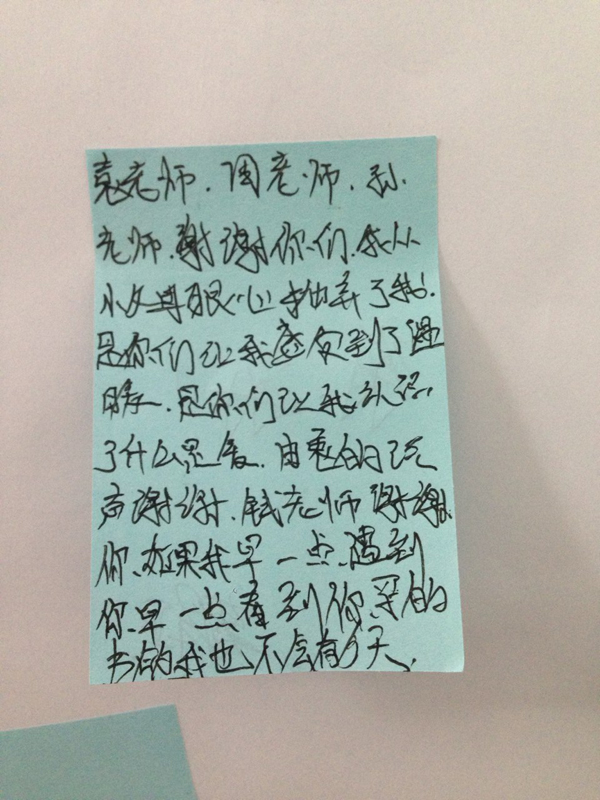 袁老师.周老师.孙
老师.谢谢你们.我从
小父母狠心抛弃了我.
是你们让我感匃到了温
暖.是你们让我认识
了什么是爱.由衷的说
声谢谢.钱老师谢谢
你.如果我早一点遇到
你.早一点看到你写的
书的我也不会有今天.